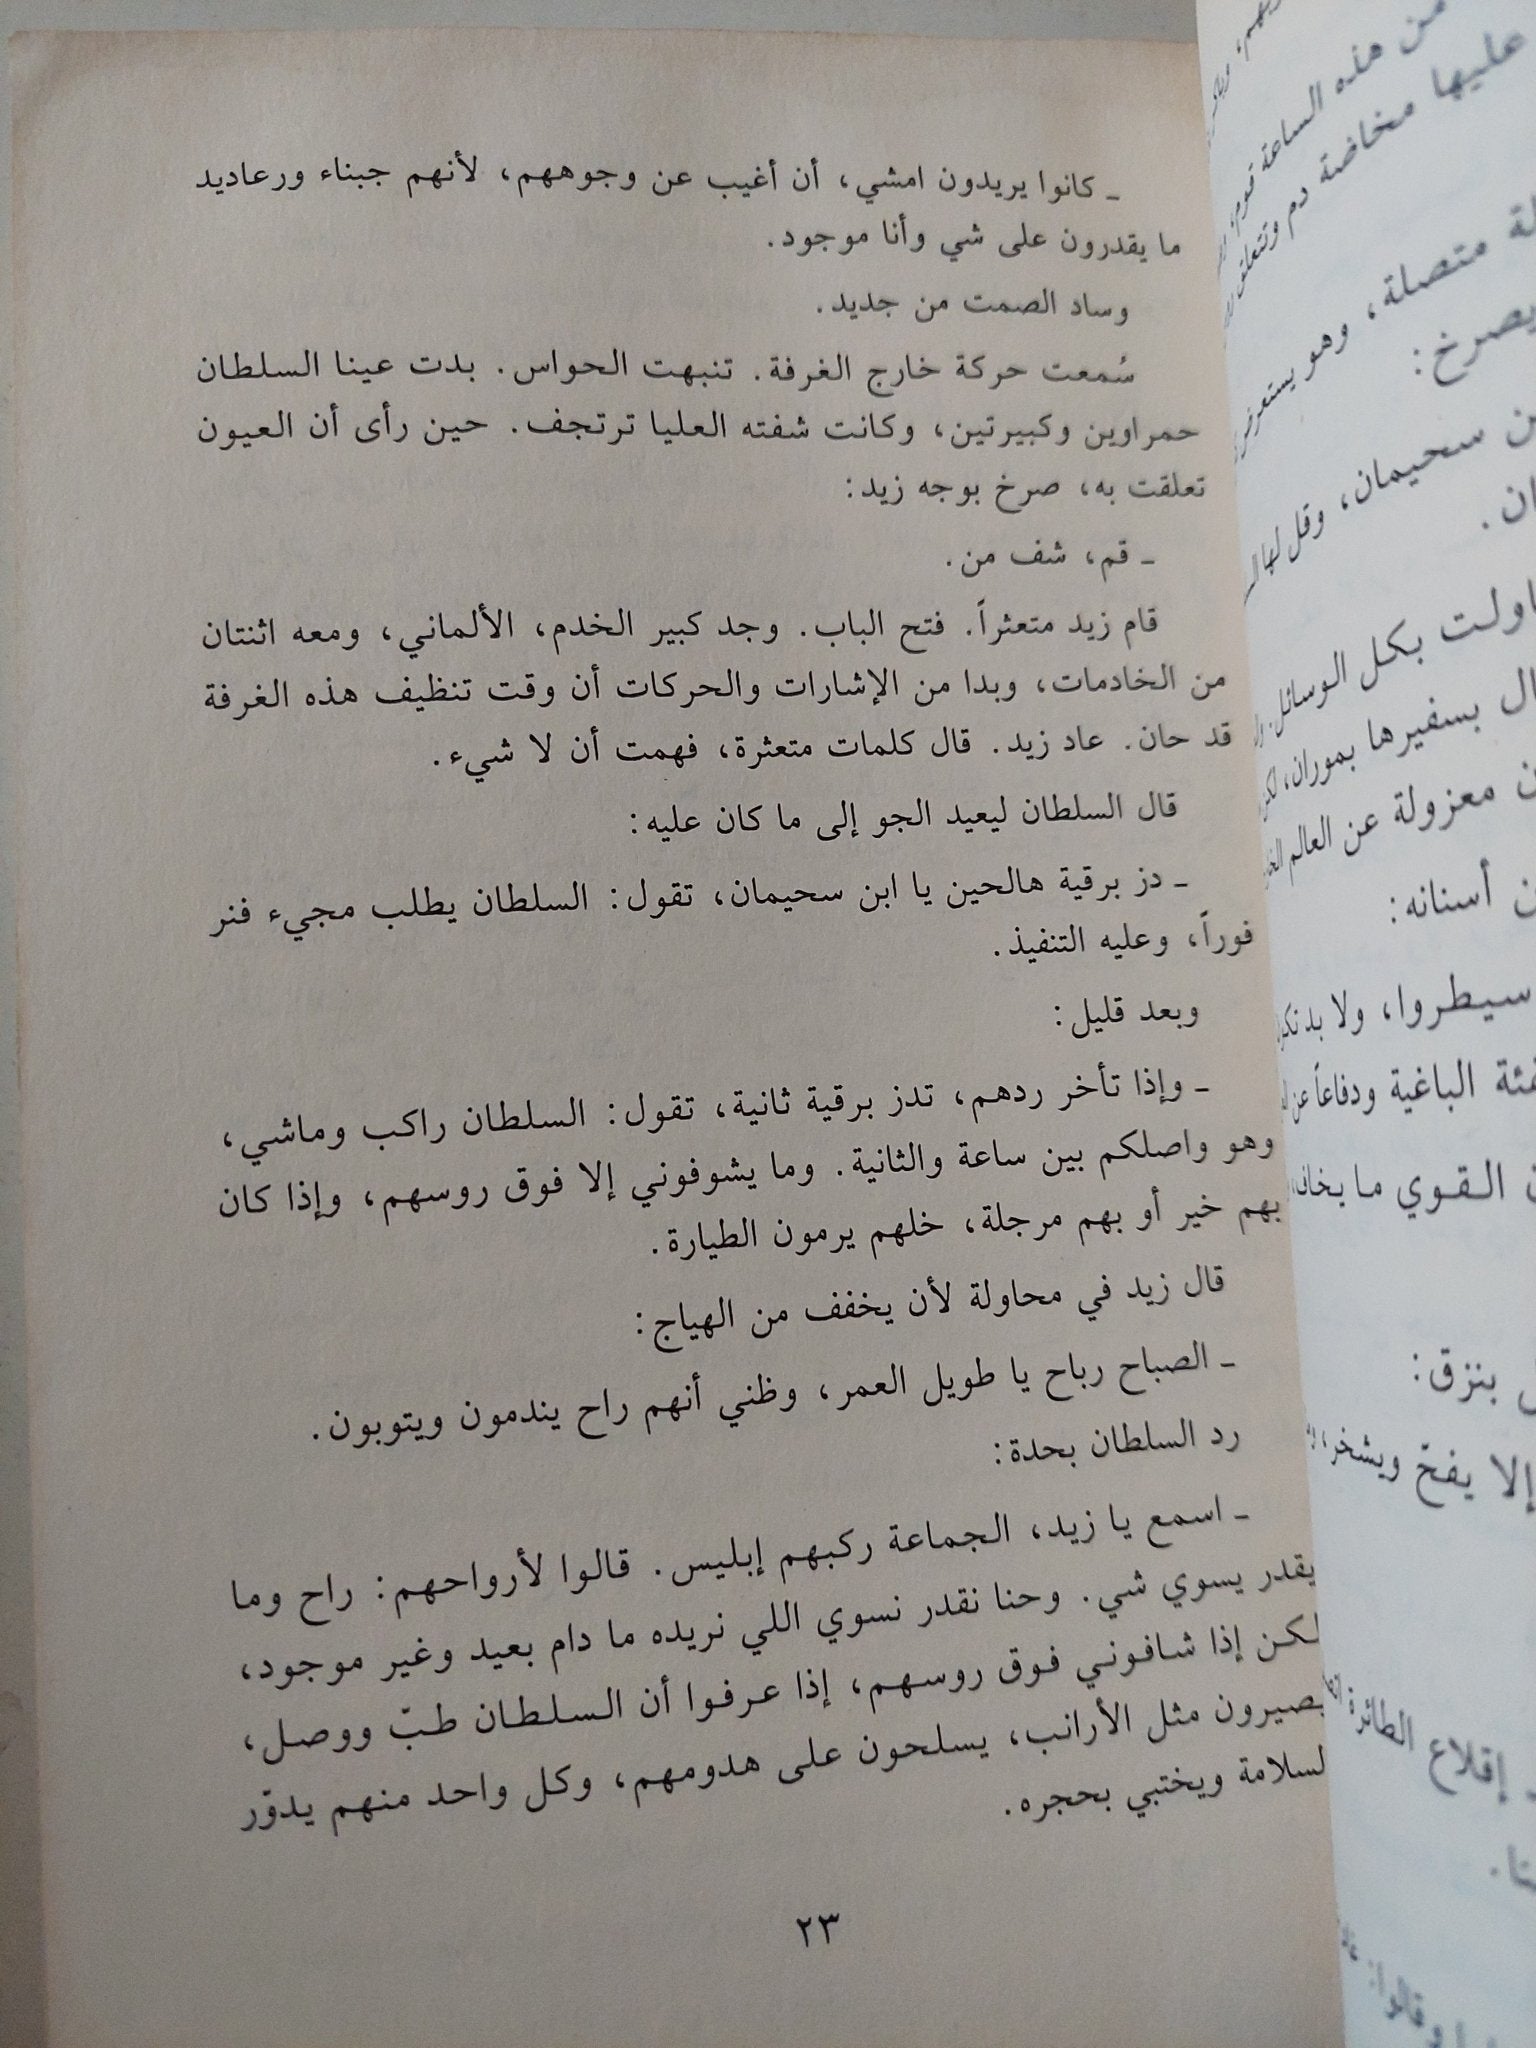 ـ كانوا يريدون امشي، أن أغيب عن وجوههم، لأنهم جبناء ورعاديد
ما يقدرون على شي وأنا موجود.
وساد الصمت من جديد.
سُمعت حركة خارج الغرفة. تنبهت الحواس. بدت عينا السلطان
حمراوين وكبيرتين، وكانت شفته العليا ترتجف. حين رأى أن العيون
تعلقت به، صرخ بوجه زيد:
ـ قم، شف من.
قام زيد متعثراً. فتح الباب. وجد كبير الخدم، الألماني، ومعه اثنتان
من الخادمات، وبدا من الإشارات والحركات أن وقت تنظيف هذه الغرفة
قد حان. عاد زيد. قال كلمات متعثرة، فهمت أن لا شيء.
قال السلطان ليعيد الجو إلى ما كان عليه:
ـ دز برقية هالحين يا ابن سحيمان، تقول: السلطان يطلب مجيء فنر
فوراً، وعليه التنفيذ.
وبعد قليل:
ـ وإذا تأخر ردهم، تدز برقية ثانية، تقول: السلطان راكب وماشي،
وهو واصلكم بين ساعة والثانية. وما يشوفوني إلا فوق روسهم، وإذا كان
بهم خير أو بهم مرجلة، خلهم يرمون الطيارة.
قال زيد في محاولة لأن يخفف من الهياج:
ـ الصباح رباح يا طويل العمر، وظني أنهم راح يندمون ويتوبون.
رد السلطان بحدة:
ـ اسمع يا زيد، الجماعة ركبهم إبليس. قالوا لأرواحهم: راح وما
يقدر يسوي شي. وحنا نقدر نسوي اللي نريده ما دام بعيد وغير موجود،
لكن إذا شافوني فوق روسهم، إذا عرفوا أن السلطان طبّ ووصل،
يصيرون مثل الأرانب، يسلحون على هدومهم، وكل واحد منهم يدوّر
لسلامة ويختبي بحجره.
٢٣
من هذه الساعة
عليها مخاضة دم
متصلة، وهو
يصرخ:
سحيمان، وقل لها
بكل الوسائل
بسفيرها بموران،
معزولة عن العالم
أسنانه:
سيطروا، ولا بد
الباغية ودفاعاً عن
القوي ما
بنزق:
إلا يفحّ ويشخر،
إقلاع الطائرة